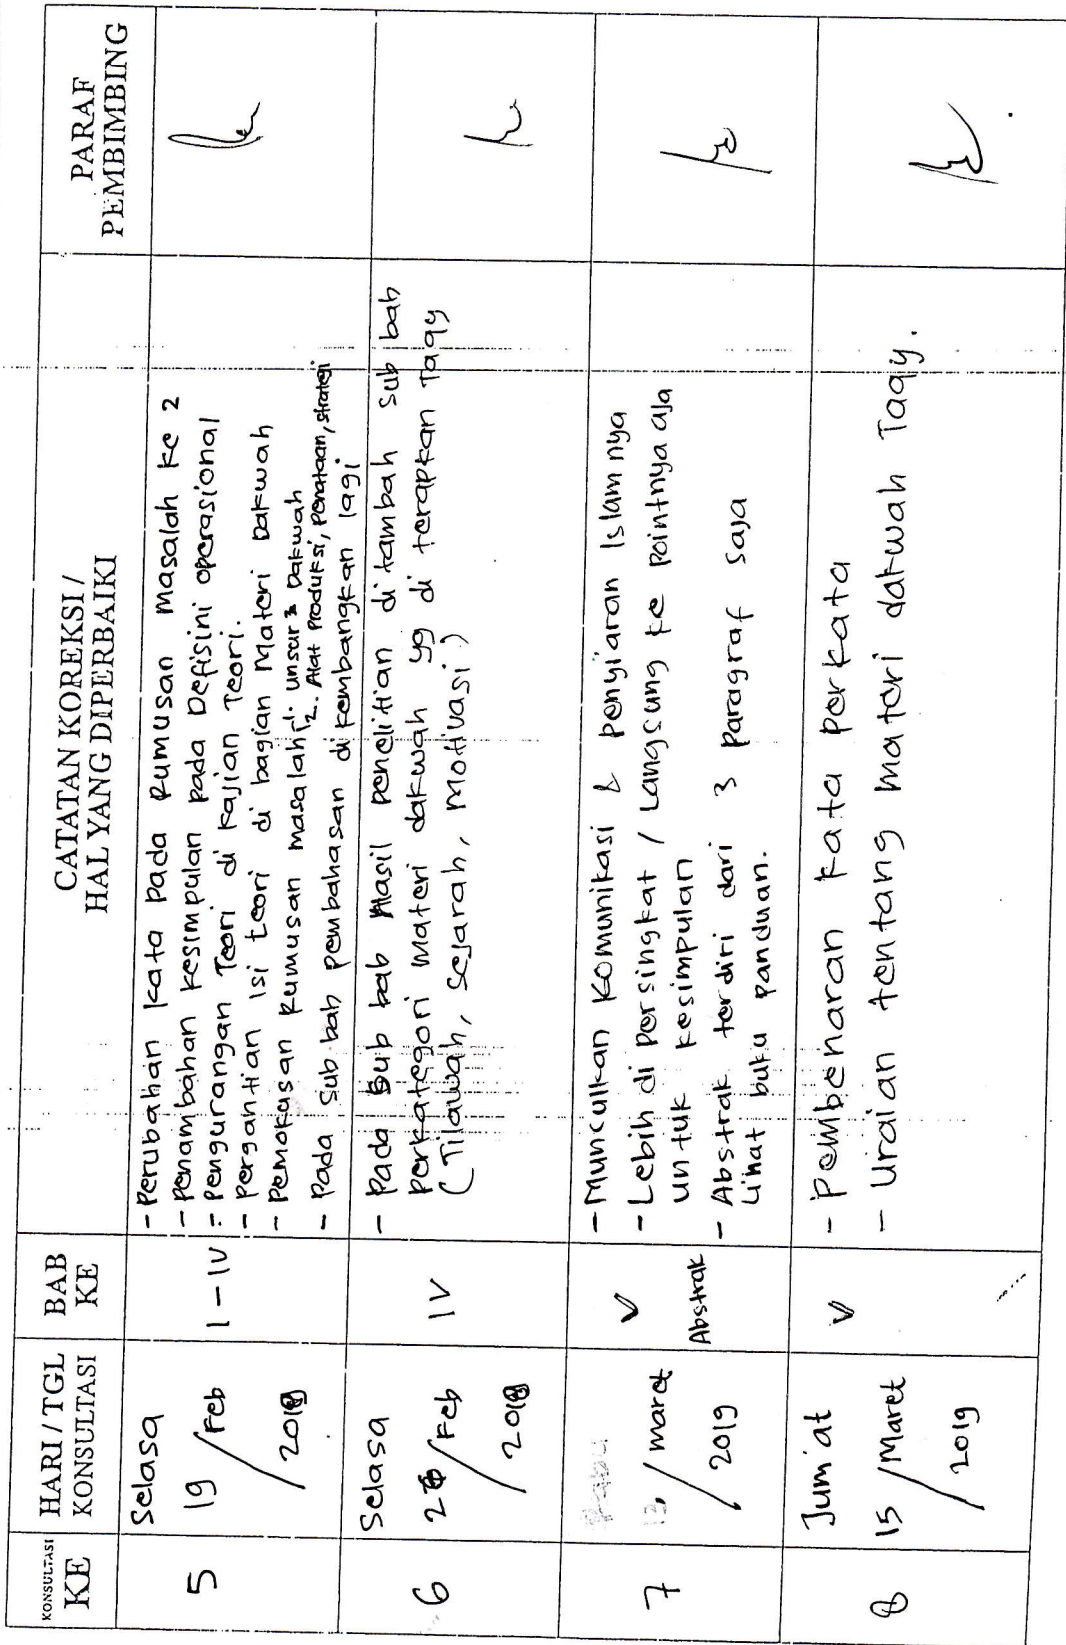 KONSULTASI
KE
HARI / TGL
KONSULTASI
BAB
KE
CATATAN KOREKSI /
HAL YANG DIPERBAIKI
PARAF
PEMBIMBING
5
Selasa
19 / Feb
/ 2019
I - IV
- Perubahan kata pada Rumusan Masalah ke 2
- Penambahan kesimpulan pada Defisini operasional
- Pengurangan Teori di Kajian Teori.
- Pergantian isi teori di bagian Materi Dakwah
- Pemokusan Rumusan masalah 1. unsur2 Dakwah
2. Alat Produksi, Penataan, strategi
- Pada sub bab pembahasan di kembangkan lagi
6
Selasa
26 / Feb
/ 2019
IV
- Pada sub bab Hasil penelitian di tambah sub bab
perkategori materi dakwah yg di terapkan Taqy
(Tilawah, Sejarah, Motivasi)
7
Rabu
13. / maret
/ 2019
V
Abstrak
- Munculkan Komunikasi & Penyiaran Islamnya
- Lebih di Persingkat / Langsung ke Pointnya aja
untuk kesimpulan
- Abstrak terdiri dari 3 Paragraf saja
Lihat buku panduan.
8
Jum'at
15 / Maret
/ 2019
V
- Pembenaran kata perkata
- Uraian tentang materi dakwah Taqy.